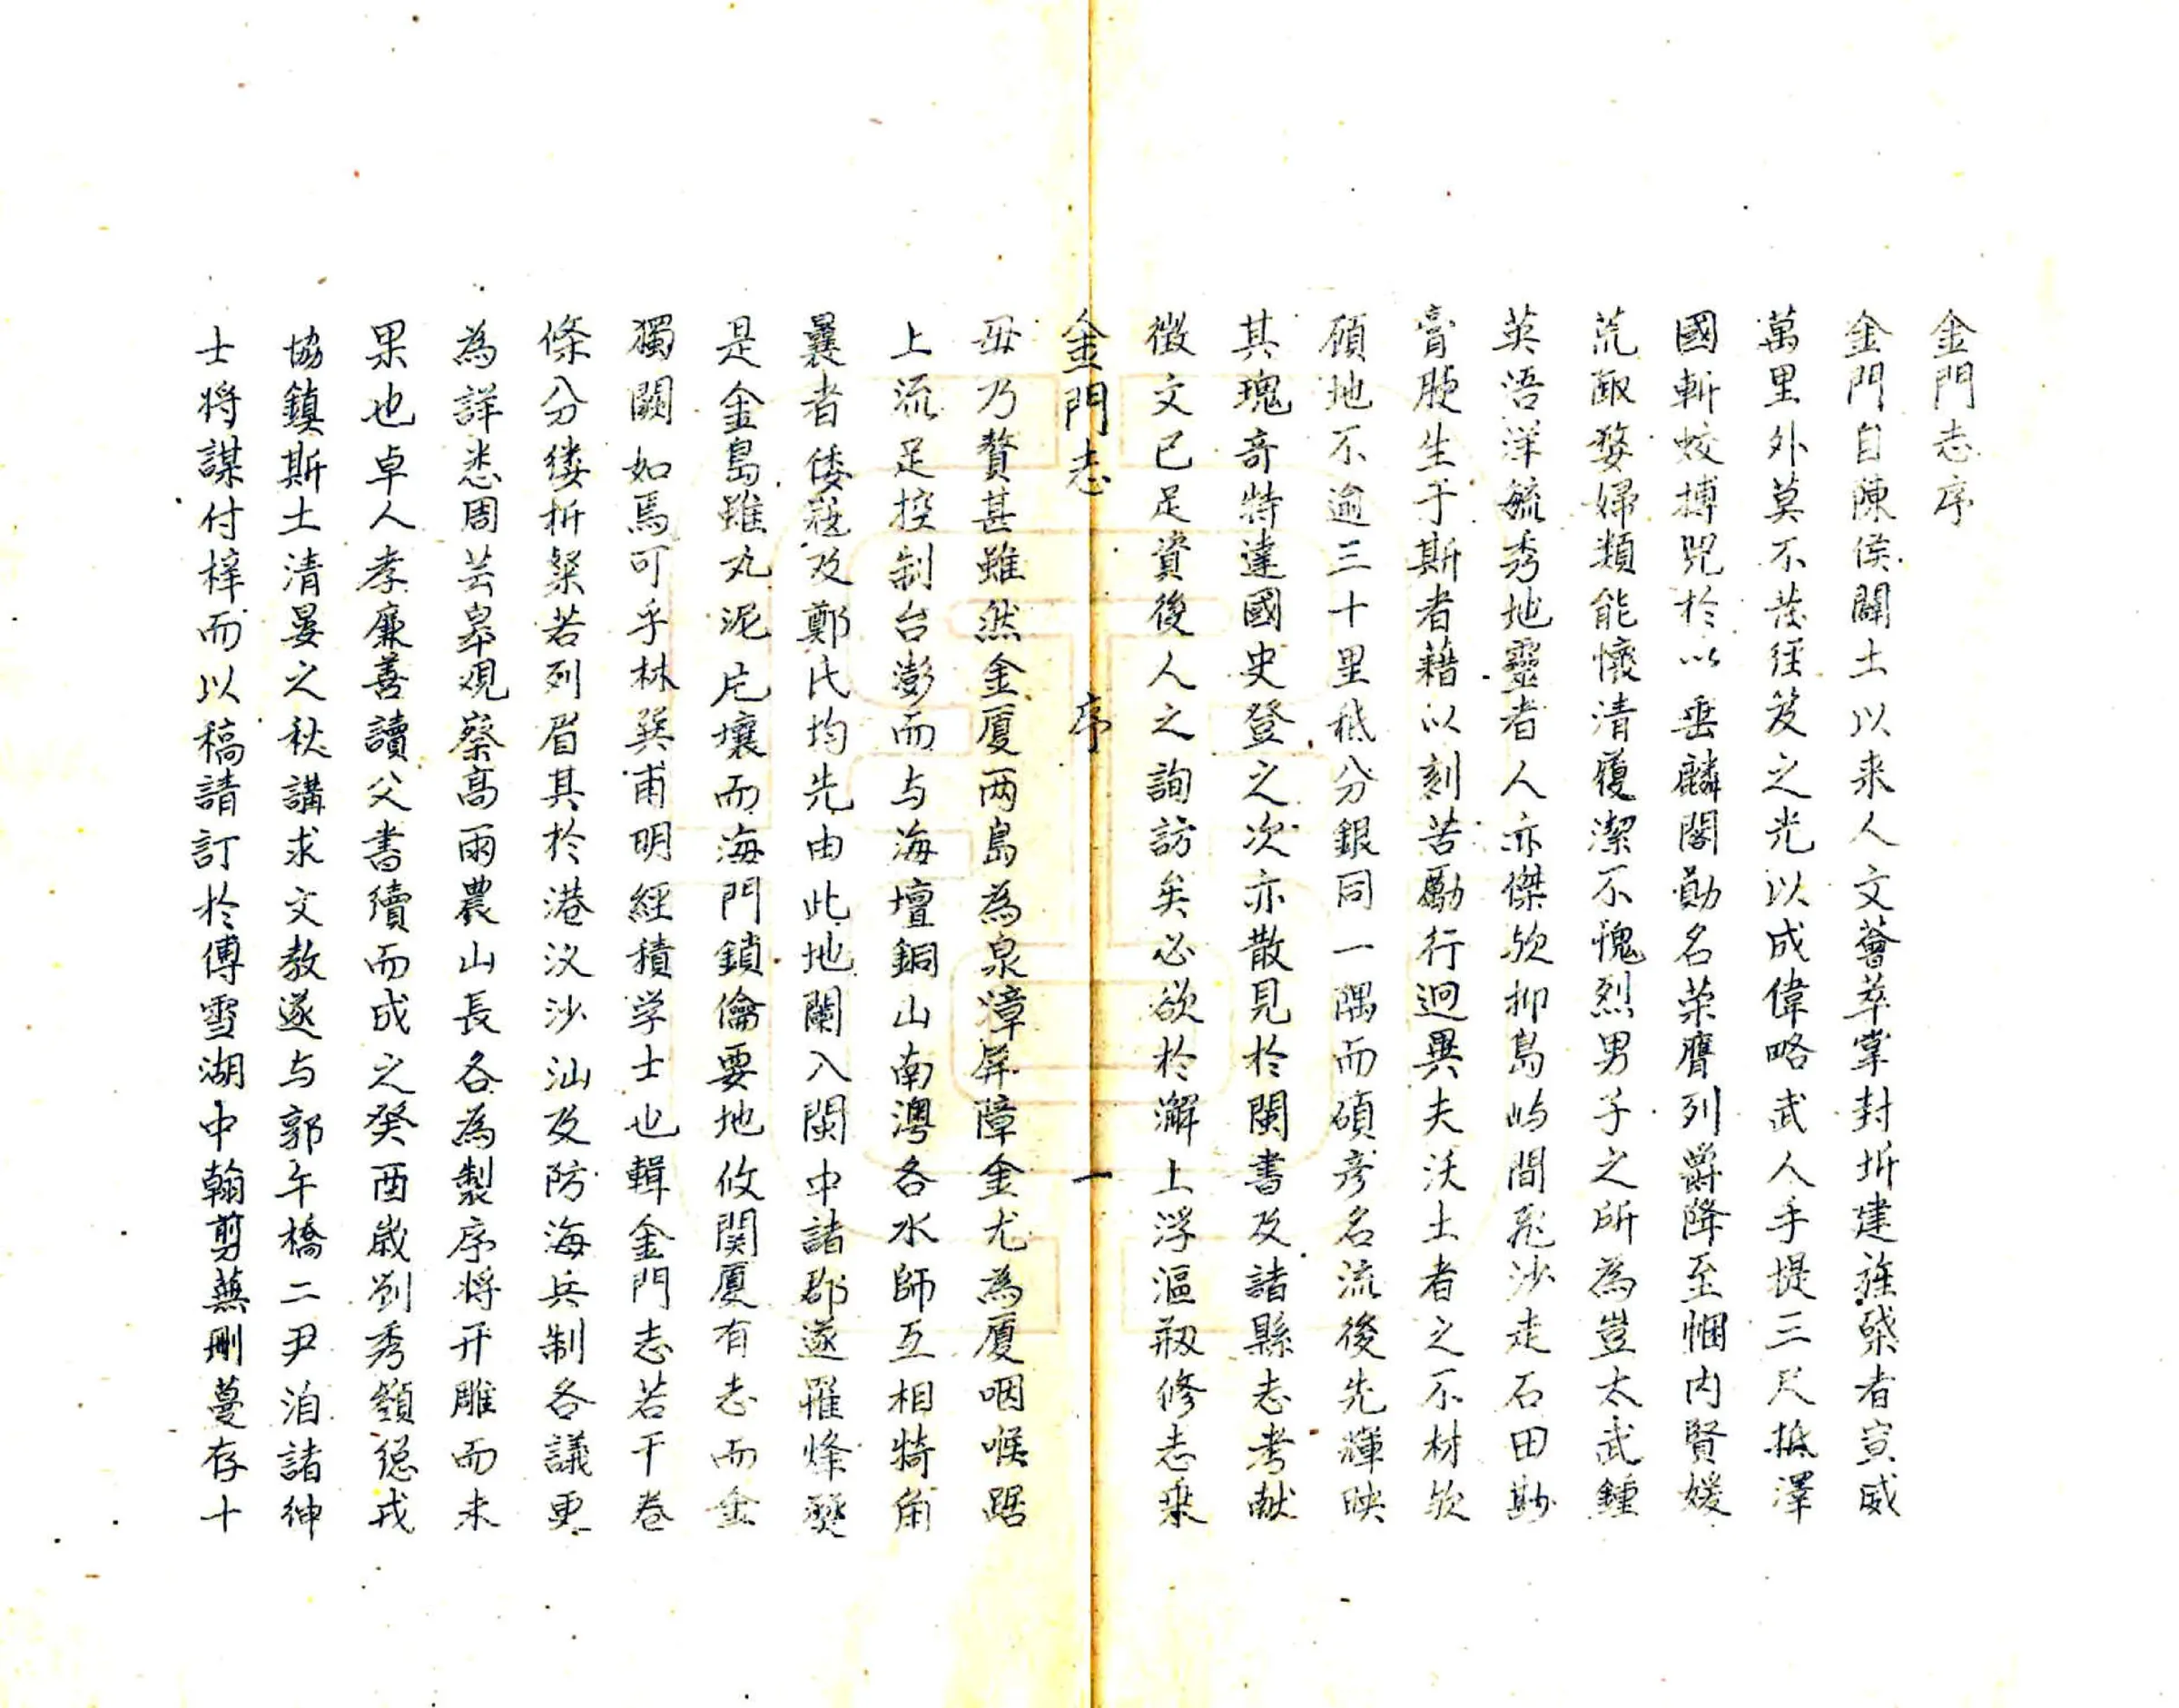 金門志序
金門自陳侯闢土以来人文薈萃掌封圻建旌棨者宣威
萬里外莫不茂徃笈之光以成偉略武人手提三尺抵澤
國斬蛟搏兕於以垂麟閣勛名荣膺列爵降至悃内賢媛
荒陬婺婦類能懷清履潔不愧烈男子之所為豈太武鍾
英浯洋毓秀地靈者人亦傑欤抑島屿間飛沙走石田尠
膏腴生于斯者藉以刻苦勵行迥異夫沃土者之不材欤
顾地不逾三十里秖分銀同一隅而碩彦名流後先輝映
其瑰奇特達國史登之次亦散見於閩書及諸縣志考献
徵文已足資後人之詢訪矣必欲於澥上浮漚剏修志乘
金門志 序 一
毋乃贅甚雖然金厦两島為泉漳屏障金尤為厦咽喉踞
上流足控制台澎而与海壇銅山南澳各水師互相犄角
曩者倭寇及鄭氏均先由此地闌入閩中諸郡遂罹烽燹
是金島雖丸泥片壤而海門鎖鑰要地攸関厦有志而金
獨闕如焉可乎林巽甫明經積学士也輯金門志若干卷
條分缕析粲若列眉其於港汊沙汕及防海兵制各議更
為詳悉周芸皋观察高雨農山長各為製序将开雕而未
果也卓人孝廉善讀父書續而成之癸酉歲劉秀嶺總戎
協鎮斯土清晏之秋講求文教遂与郭午橋二尹洎諸紳
士将謀付梓而以稿請訂於傅雪湖中翰剪蕪刪蔓存十